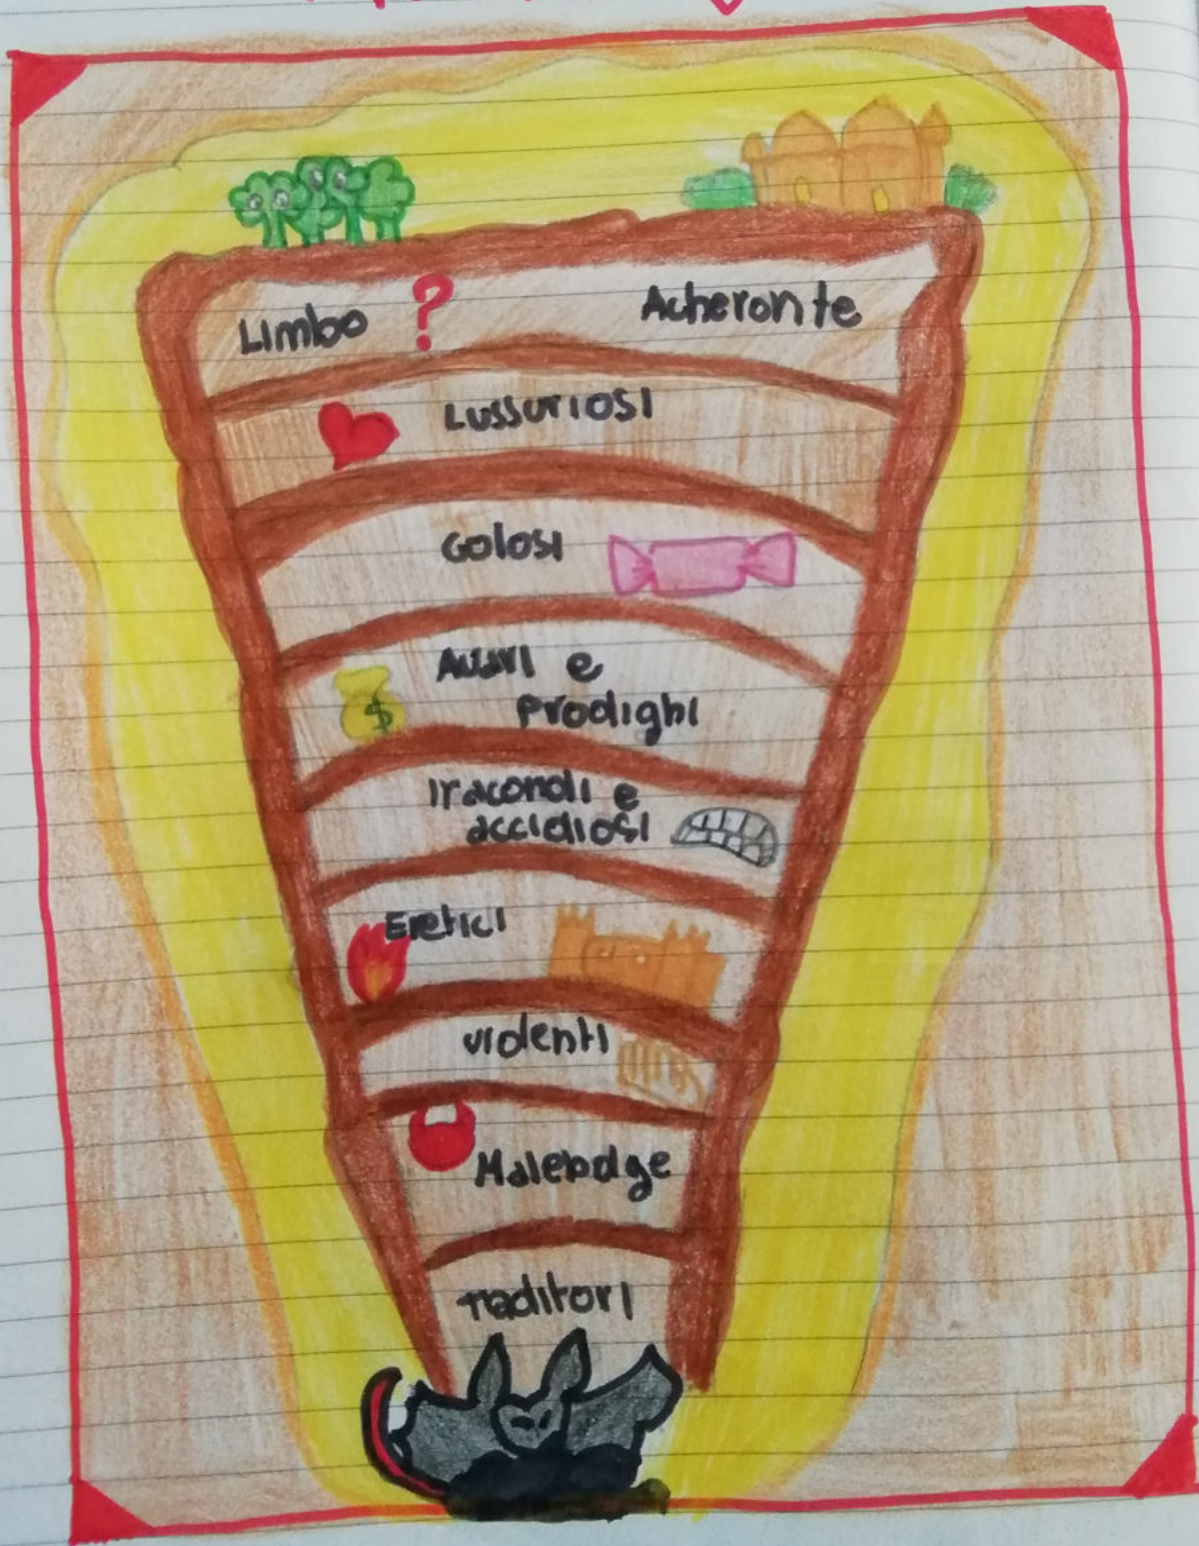 Limbo ? Acheronte
Lussuriosi
Golosi
Avari e
Prodighi
$
Iracondi e
accidiosi
Eretici
violenti
Malebolge
traditori